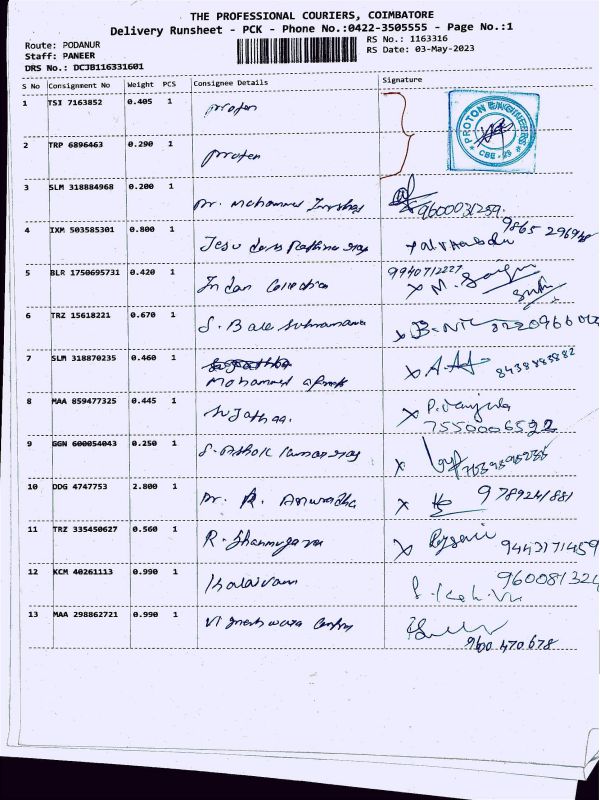 THE PROFESSIONAL COURIERS, COIMBATORE
Delivery Runsheet - PCK - Phone No.:0422-3505555 - Page No.:1
Route: PODANUR
RS No.: 1163316
Staff: PANEER
RS Date: 03-May-2023
DRS No.: DCJB116331601
S No Consignment No Weight PCS Consignee Details Signature
1 TSI 7163852 0.405 1 proton
PROTON ENGINEERS
CBE - 23
2 TRP 6896463 0.290 1 proton
3 SLM 318884968 0.200 1 Mr. Mohammed 9600031259
4 IXM 503585301 0.800 1 Jesu
5 BLR 1750695731 0.420 1 Indan Collection 9940712227 M.
6 TRZ 15618221 0.670 1 S. Bala
7 SLM 318870235 0.460 1 Mohammed 8438883882
8 MAA 859477325 0.445 1 Sujatha. P. 7550006592
9 GGN 600054043 0.250 1 S. Ashok
10 DDG 4747753 2.800 1 Dr. R. Anuradha 9789241881
11 TRZ 335450627 0.560 1 R. Shanmugam 9443171459
12 KCM 40261113 0.990 1 Kalaivani
13 MAA 298862721 0.990 1 Vigneshwara 9600 470678